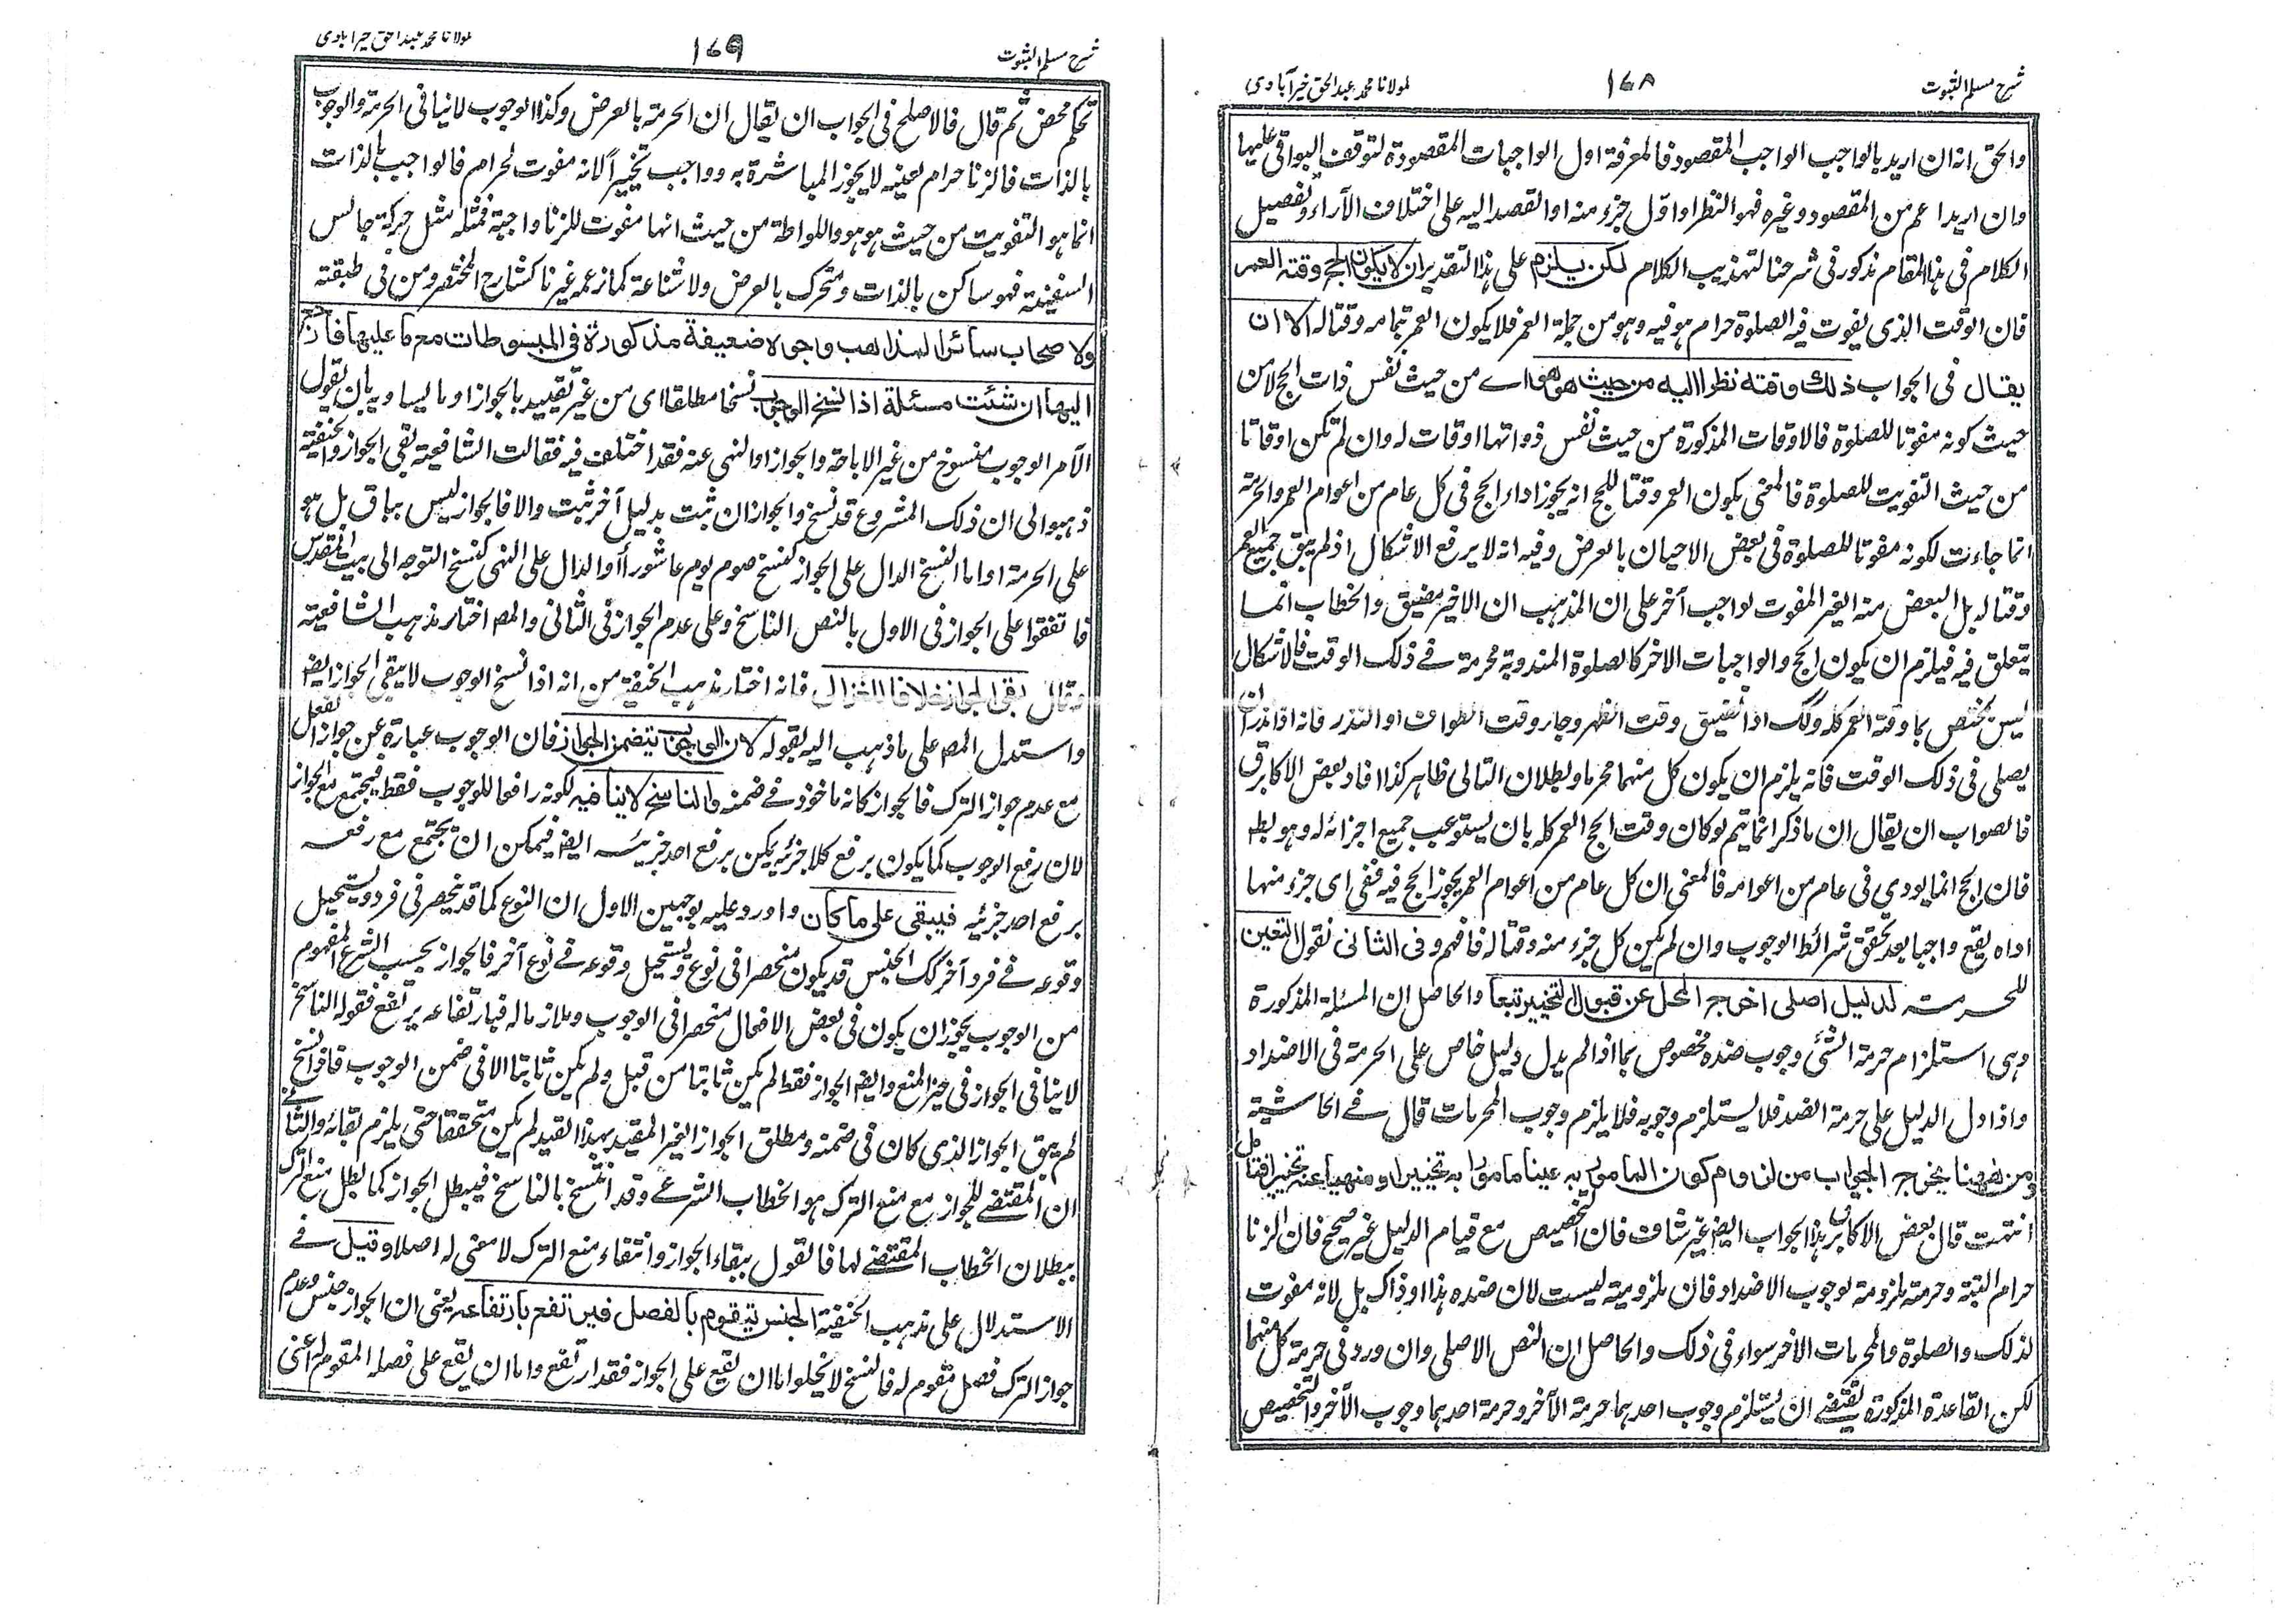 شرح مسلم الثبوت
١٦٨
لمولانا محمد عبد الحق خيرآبادي
والحق انه ان اريد بالواجب الواجب المقصود فالمعرفة اول الواجبات المقصودة لتوقف البواقى عليها
وان اريد اعم من المقصود وغيره فهو النظر او اول جزء منه او القصد اليه على اختلاف الآراء وتفصيل
الكلام فى هذا المقام مذكور فى شرحنا لتهذيب الكلام لكن يلزم على هذا التقدير ان لا يكون الحج وقته العمر
فان الوقت الذى يفوت فيه الصلوة حرام هو فيه وهو من جملة العمر فلا يكون العمر بتمامه وقتا له الا ان
يقال فى الجواب ذلك وقته نظرا اليه من حيث هو هو اے من حيث نفس ذات الحج لا من
حيث كونه مفوتا للصلوة فالاوقات المذكورة من حيث نفس ذواتها اوقات له وان لم تكن اوقاتا
من حيث التفويت للصلوة فالمعنى بكون العمر وقتا للحج انه يجوز اداء الحج فى كل عام من اعوام العمر والحرمة
انما جاءت لكونه مفوتا للصلوة فى بعض الاحيان بالعرض وفيه انه لا يرفع الاشكال اذ لم يبق جميع العمر
وقتا له بل البعض منه الغير المفوت لواجب آخر على ان المذهب ان الاخير مضيق والخطاب انما
يتعلق فيه فيلزم ان يكون الحج والواجبات الاخر كالصلوة المندوبة محرمة فے ذلك الوقت فالاشكال
ليس يختص بما وقته العمر كله وكك اذا تضيق وقت الظهر وجاء وقت الطواف او النذر فانه اذا نذر ان
يصلى فى ذلك الوقت فانه يلزم ان يكون كل منهما محرما وبطلان التالى ظاهر كذا افاد بعض الاكابر ق
فالصواب ان يقال ان ما ذكر انما يتم لو كان وقت الحج العمر كله بان يستوعب جميع اجزائه له وهو بط
فان الحج انما يودى فى عام من اعوامه فالمعنى ان كل عام من اعوام العمر يجوز الحج فيه ففى اى جزء منها
اداه يقع واجبا بعد تحقق شرائط الوجوب وان لم يكن كل جزء منه وقتا له فافهم وفى الثانى نقول التعين
للحرمة لدليل اصلى اخرج المحل عن قبول التخيير تبعا والحاصل ان المسئلة المذكورة
وهى استلزام حرمة الشئ وجوب ضده مخصوص بما اذا لم يدل دليل خاص على الحرمة فى الاضداد
واذا دل الدليل على حرمة الضد فلا يستلزم وجوبه فلا يلزم وجوب المحرمات قال فے الحاشية
ومن ههنا يخرج الجواب من لزوم كون المامور به عينا مامورا به تخييرا ومنهيا عنه تخييرا فتامل
انتهت قال بعض الاكابر هذا الجواب ايضا غير شاف فان التخصيص مع قيام الدليل غير صحيح فان الزنا
حرام البتة وحرمته ملزومة لوجوب الاضداد فان ملزوميته ليست لان ضده هذا او ذاك بل لانه مفوت
لذلك والصلوة والمحرمات الاخر سواء فى ذلك والحاصل ان النص الاصلى وان ورد فى حرمة كل منهما
لكن القاعدة المذكورة يقتضے ان يستلزم وجوب احدهما حرمة الآخر وحرمة احدهما وجوب الآخر والتخصيص
شرح مسلم الثبوت
١٦٩
لمولانا محمد عبد الحق خيرآبادي
تحكم محض ثم قال فالاصلح فى الجواب ان يقال ان الحرمة بالعرض وكذا الوجوب لا ينافى الحرمة والوجوب
بالذات فالزنا حرام لعينه لا يجوز المباشرة به وواجب تخييرا لانه مفوت لحرام فالواجب بالذات
انما هو التفويت من حيث هو هو واللواطة من حيث انها مفوت للزنا واجبة فمثله مثل حركة جالس
السفينة فهو ساكن بالذات ومتحرك بالعرض ولا شناعة كما زعمه غيرنا كشارح المختصر ومن فى طبقته
ولاصحاب سائر المذاهب وجوه ضعيفة مذكورة فى المبسوطات مع ما عليها فارجع
اليها ان شئت مسئلة اذا نسخ الوجوب نسخا مطلقا اى من غير تقييد بالجواز او ما يساويه بان يقول
الآمر الوجوب منسوخ من غير الاباحة والجواز او النهى عنه فقد اختلف فيه فقالت الشافعية بقى الجواز والحنفية
ذهبوا الى ان ذلك المشروع قد نسخ والجواز ان ثبت بدليل آخر ثبت والا فالجواز ليس بباق بل هو
على الحرمة او اما النسخ الدال على الجواز كنسخ صوم يوم عاشورا او الدال على النهى كنسخ التوجه الى بيت المقدس
فاتفقوا على الجواز فى الاول بالنص الناسخ وعلى عدم الجواز فى الثانى والمص اختار مذهب الشافعية
وقال بقى الجواز خلافا للغزالى فانه اختار مذهب الحنفية من انه اذا نسخ الوجوب لا يبقى الجواز ايضا
واستدل المص على ما ذهب اليه بقوله لان الوجوب يتضمن الجواز فان الوجوب عبارة عن جواز الفعل
مع عدم جواز الترك فالجواز كانه ماخوذ فے ضمنه والناسخ لا ينافيه لكونه رافعا للوجوب فقط فيجتمع مع الجواز
لان رفع الوجوب كما يكون برفع كلا جزئيه يكن برفع احد جزئيه ايضا فيمكن ان يجتمع مع رفعه
برفع احد جزئيه فيبقى على ما كان واورد عليه بوجهين الاول ان النوع كما قد ينحصر فى فرد ويستحيل
وقوعه فے فرد آخر كك الجنس قد يكون منحصرا فى نوع ويستحيل وقوعه فے نوع آخر فالجواز بحسب الشرع المفهوم
من الوجوب يجوز ان يكون فى بعض الافعال منحصرا فى الوجوب وملازما له فبارتفاعه يرتفع فقوله الناسخ
لا ينافى الجواز فى حيز المنع وايضا الجواز فقط لم يكن ثابتا من قبل ولم يكن ثابتا الا فى ضمن الوجوب فاذا نسخ
لم يبق الجواز الذى كان فى ضمنه ومطلق الجواز الغير المقيد بهذا القيد لم يكن متحققا حتى يلزم بقائه والثانے
ان المقتضے للجواز مع منع الترك هو الخطاب الشرعے وقد انتسخ بالناسخ فيبطل الجواز كما بطل منع الترك
ببطلان الخطاب المقتضے لها فالقول ببقاء الجواز وانتفاء منع الترك لا معنى له اصلا وقيل فے
الاستدلال على مذهب الحنفية الجنس يتقوم بالفصل فيرتفع بارتفاعه يعنى ان الجواز جنس وعدم
جواز الترك فصل مقوم له فالنسخ لا يخلو اما ان يقع على الجواز فقد ارتفع واما ان يقع على فصله المقوم له اعنى